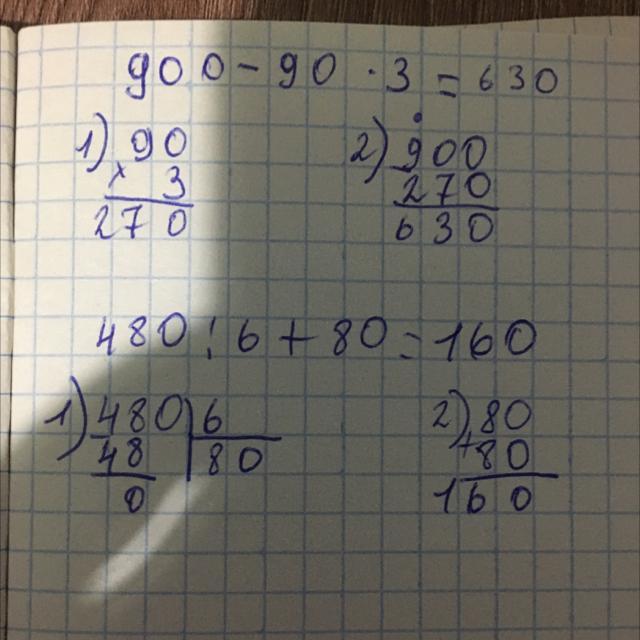 900 - 90 · 3 = 630
1) 90
× 3
270
2) 900
270
630
480 : 6 + 80 = 160
1) 480 | 6
48 | 80
0
2) 80
+80
160